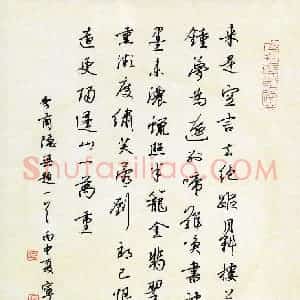 來是空言去絕蹤月斜樓
鍾夢為遠別啼難喚書被
墨未濃蠟照半籠金翡翠
熏微度繡芙蓉劉郎已恨
遠更隔蓬山一萬重
李商隱無題一首丙申夏寧
Shufaziliao.com